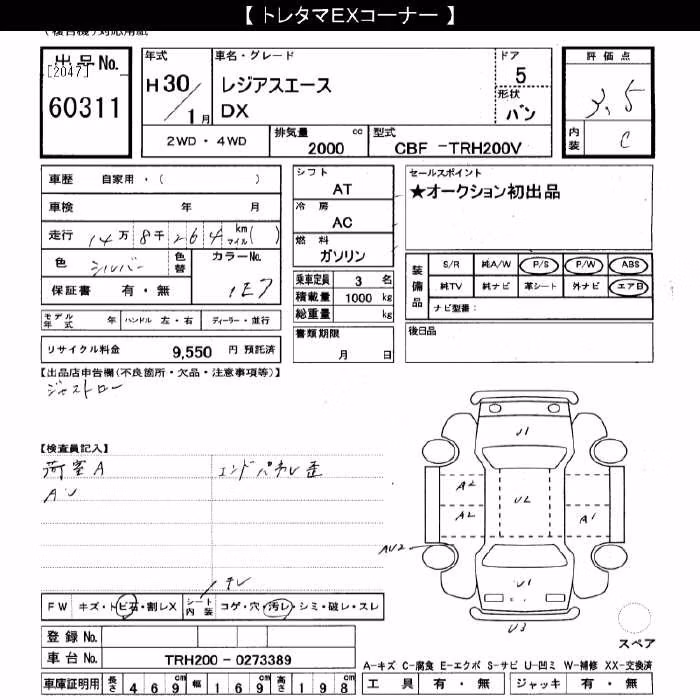 【 トレタマEXコーナー 】
(複合機)対応用紙
出品No.
[2047]
60311
年式
H30/1月
車名・グレード
レジアスエース
DX
ドア
5
形状
バン
評価点
3.5
内装
C
2WD・4WD
排気量 cc
2000
型式
CBF -TRH200V
車歴 自家用・( )
車検 年 月
走行 14万 8千 264 km マイル( )
色 シルバー 色替
カラーNo.
1E7
保証書 有・無
モデル年式 年 ハンドル 左・右 ディーラー・並行
リサイクル料金 9,550 円 預託済
シフト
AT
冷房
AC
燃料
ガソリン
乗車定員 3 名
積載量 1000 kg
総重量 kg
書類期限
月 日
セールスポイント
★オークション初出品
装備品
S/R 純A/W P/S P/W ABS
純TV 純ナビ 革シート 外ナビ エアB
ナビ型番:
後日品
【出品店申告欄(不良箇所・欠品・注意事項等)】
ジャストロー
【検査員記入】
荷室A
AU
エンドパネル歪
FW キズ・トビ石・割レX
シート内装 コゲ・穴・汚レ・シミ・破レ・スレ
登録No.
車台No. TRH200-0273389
車庫証明用 長さ 469 幅 169 高さ 198
U1
A2
U2
A2
A1
AU2
U1
U3
スペア
A-キズ C-腐食 E-エクボ S-サビ U-凹ミ W-補修 XX-交換済
工具 有・無 ジャッキ 有・無